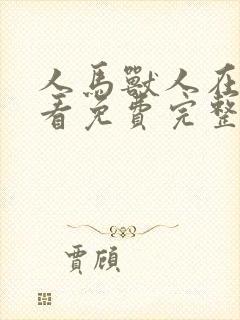 人馬獸人在
看免費完整
賈頎